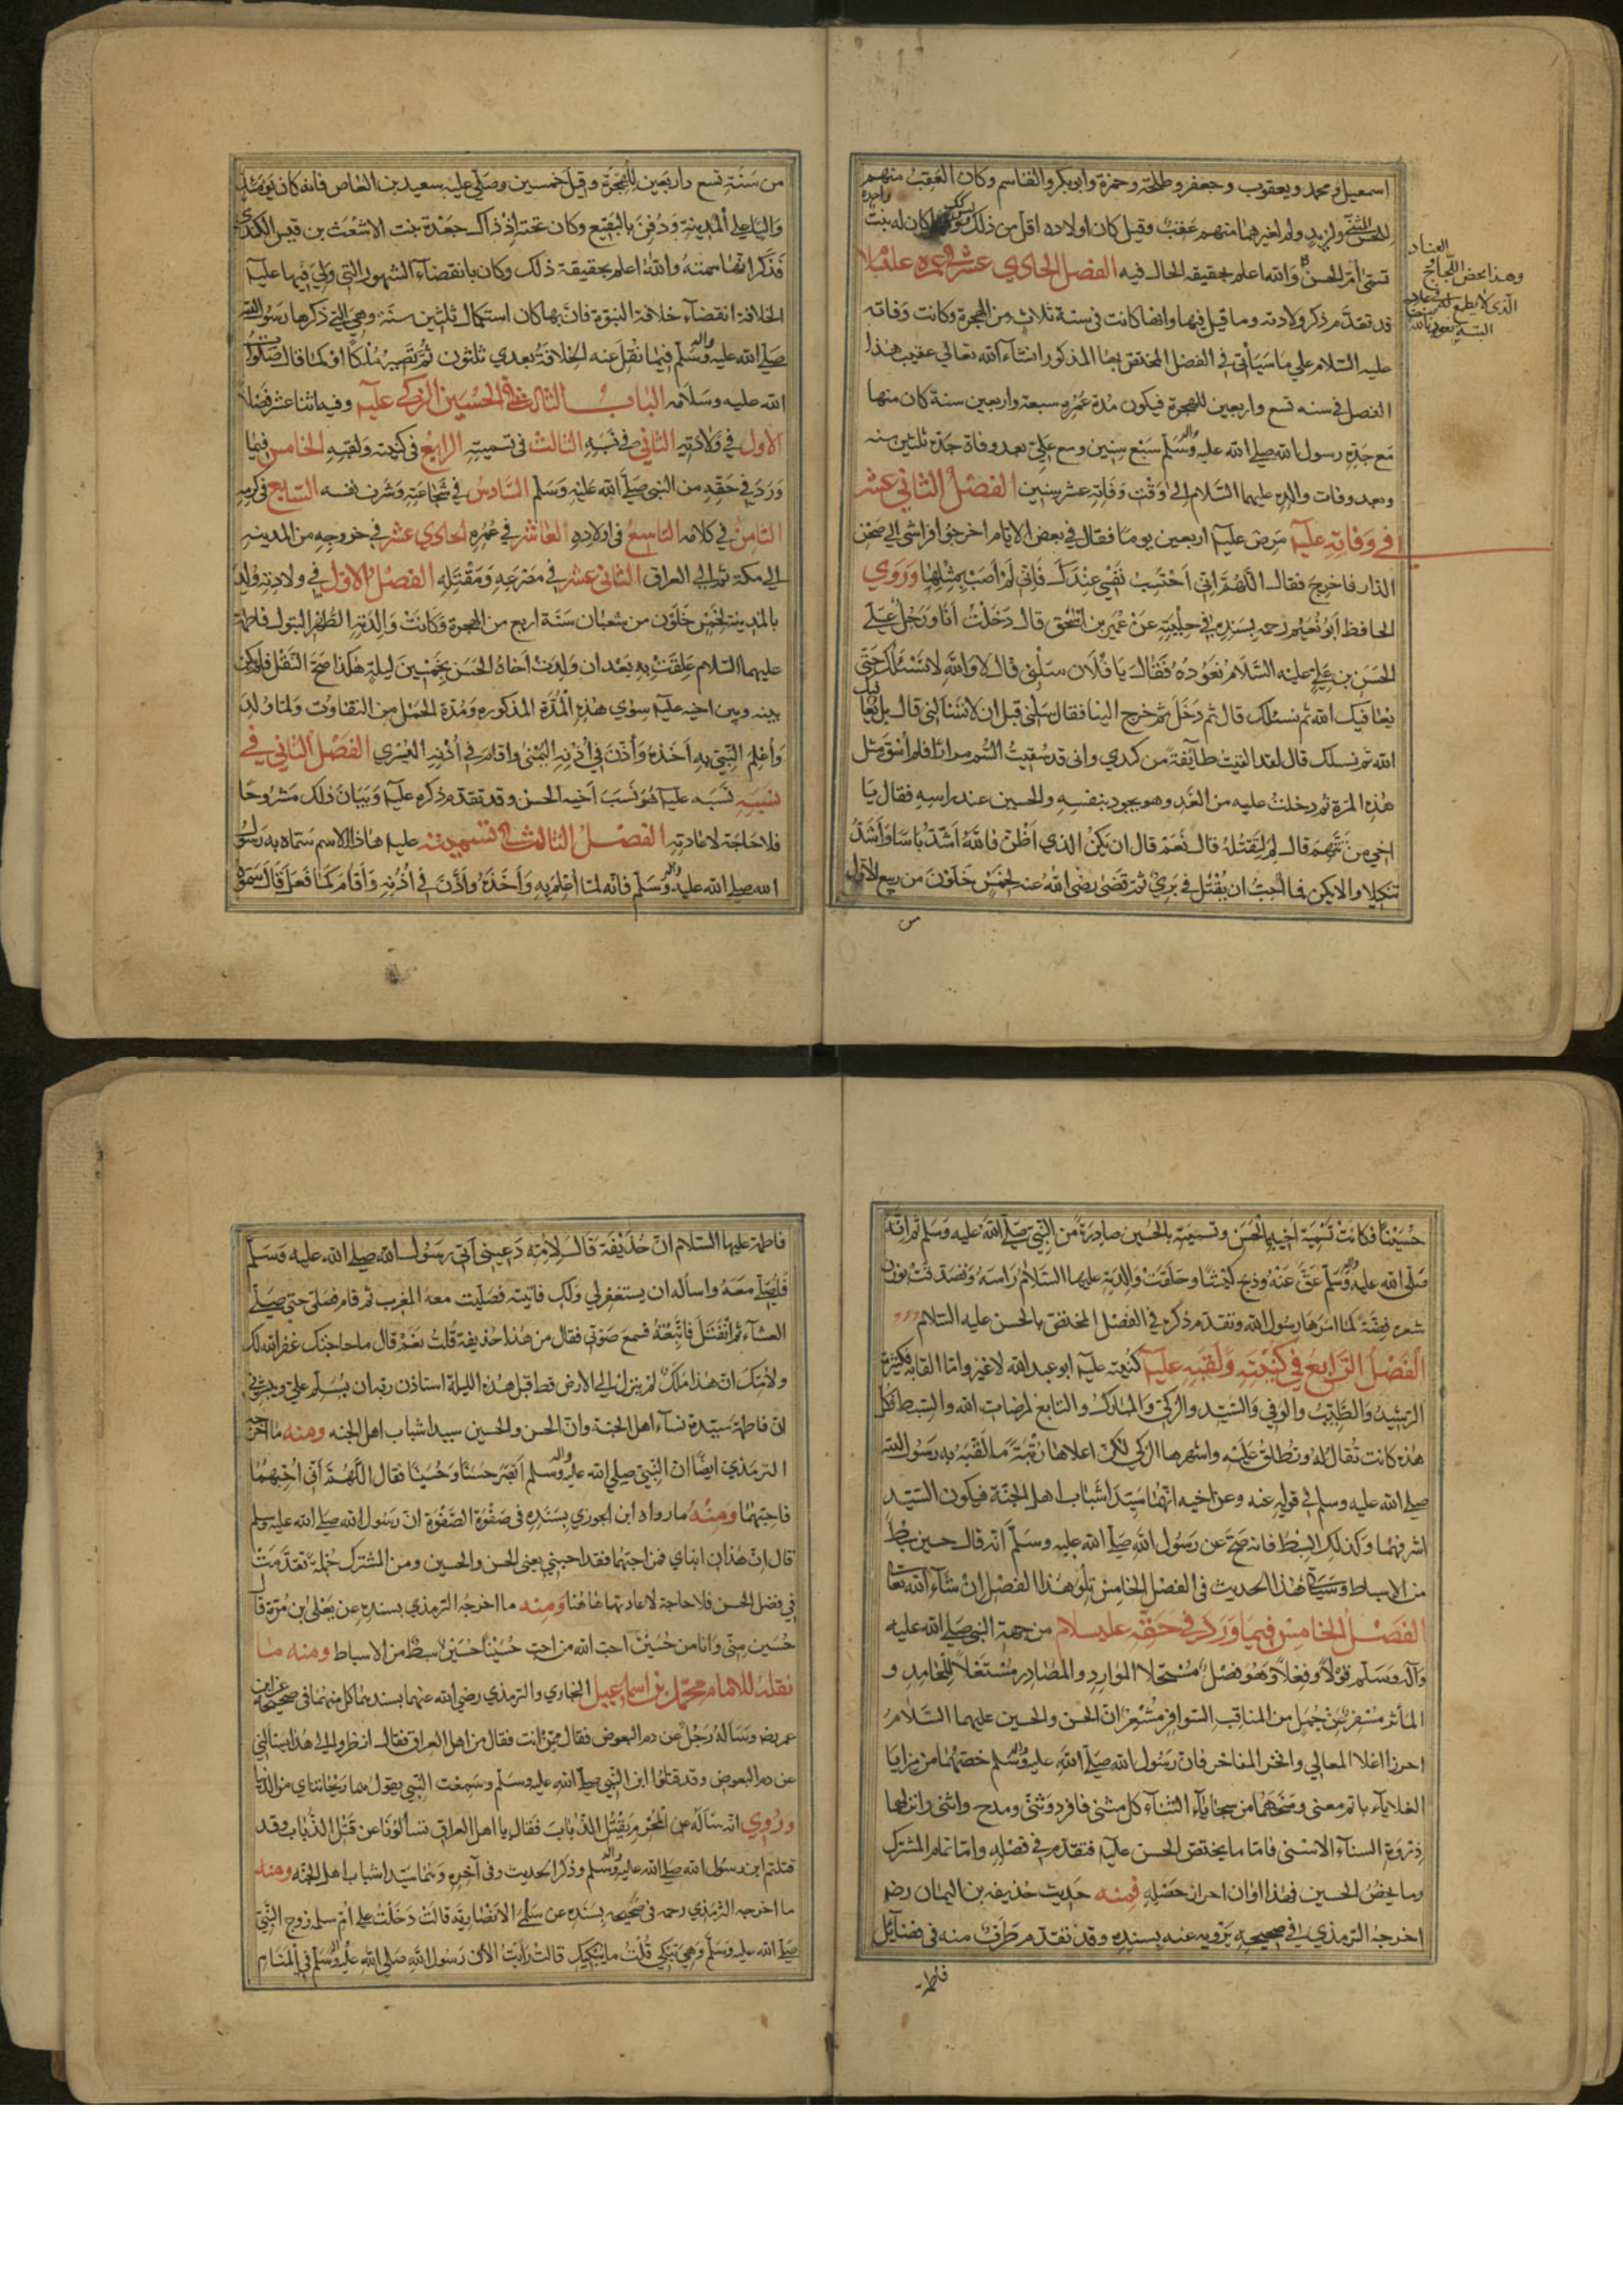 اسمعيل ومحمد ويعقوب وجعفر وطلحة وحمزة وابو بكر والقاسم وكان العقب منهم
للحسن ولزيد ولم لغيرهما منهم عقب وقيل كان اولاده اقل من ذلك وقيل كان له بنت واحدة
تسمى ام الحسن والله اعلم بحقيقه الحال فيه الفصل الحادي عشر في عمره عليه السلام
قد تقدم ذكر ولادته وما قيل فيها وانها كانت في سنة ثلاث من الهجرة وكانت وفاته
عليه السلام على ما سيأتي في الفصل المختص بها المذكور انشاء الله تعالى عقيب هذا
الفصل في سنه تسع واربعين للهجرة فيكون مدة عمره سبعة واربعين سنة كان منها
مع جده رسول الله صلى الله عليه واله وسلم سبع سنين ومع علي بعد وفاة جده ثلثين سنه
وبعد وفات والده عليهما السلام الى وقت وفاته عشر سنين الفصل الثاني عشر
في وفاته عليه مرض عليه اربعين يوما فقال في بعض الايام اخرجوا فراشي الى صحن
الدار فاخرج فقال اللهم اني احتسب نفسي عندك فاني لم اصب بمثلها وروي
الحافظ ابو نعيم رحمه بسنده في حليته عن عمير بن اسحق قال دخلت انا ورجل على
الحسن بن علي عليه السلام نعوده فقال يا فلان سلني قال لا والله لا نسئلك حتى
يعافيك الله ثم نسئلك قال ثم دخل ثم خرج الينا فقال سلني قبل ان لا تسألني قال بل يعافيك
الله ثم نسلك قال لقد القيت طائفة من كبدي واني قد سقيت السم مرارا فلم اسق مثل
هذه المرة ثم دخلت عليه من الغد وهو يجود بنفسه والحسين عند راسه فقال يا
اخي من تتهم قال لم لتقتله قال نعم قال ان يكن الذي اظن فالله اشد باسا واشد
تنكيلا والا يكن فما احب ان يقتل في بري ثم قضى رضي الله عنه لخمس خلون من ربيع الاول
العناد
وهذا بعض اللجاج و
من سنة تسع واربعين للهجرة وقيل خمسين وصلى عليه سعيد بن العاص فانه كان يومئذ
واليا على المدينة ودفن بالبقيع وكان تحته اذ ذاك جعدة بنت الاشعث بن قيس الكندي
فذكر انها سمته والله اعلم بحقيقة ذلك وكان بانقضاء الشهور التي ولي فيها عليه
الخلافة انقضاء خلافة النبوة فان بها كان استكمال ثلثين سنة وهي التي ذكرها رسول الله
صلى الله عليه واله وسلم فيما نقل عنه الخلافة بعدي ثلثون ثم تصير ملكا او كما قال صلوات
الله عليه وسلامه الباب الثالث في الحسين الزكي عليه وفيه اثنا عشر فصلا
الاول في ولادته الثاني في نسبه الثالث في تسميته الرابع في كنيته ولقبه الخامس فيما
ورد في حقه من النبي صلى الله عليه وسلم السادس في شجاعته وشرف نفسه السابع في كرمه
الثامن في كلامه التاسع في اولاده العاشر في عمره الحادي عشر في خروجه من المدينه
الى مكة ثم الى العراق الثاني عشر في مصرعه ومقتله الفصل الاول في ولادته ولد
بالمدينة لخمس خلون من شعبان سنة اربع من الهجرة وكانت والدته الطهر البتول فاطمة
عليهما السلام علقت به بعد ان ولدت اخاه الحسن بخمسين ليلة هكذا صح النقل فلم يكن
بينه وبين اخيه عليه سوى هذه المدة المذكوره ومدة الحمل من التفاوت ولما ولد
واعلم النبي به اخذه واذن في اذنه اليمنى واقام في اذنه اليسري الفصل الثاني في
نسبه نسبه عليه هو نسب اخيه الحسن وقد تقدم ذكره عليه وبيان ذلك مشروحا
فلا حاجة لاعادته الفصل الثالث في تسميته عليه هذا الاسم سماه به رسول
الله صلى الله عليه واله وسلم فانه لما اعلم به واخذه واذن في اذنه واقام كما فعل قال سموه
حسينا فكانت تسمية اخيه الحسن وتسميته بالحسين صادرة من النبي صلى الله عليه وسلم ثم انه
صلى الله عليه واله وسلم عق عنه وذبح كبشا وحلقت والدته عليهما السلام راسه وتصدقت بوزن
شعره فضة كما امرها رسول الله وتقدم ذكره في الفصل المختص بالحسن عليه السلام
الفصل الرابع في كنيته ولقبه عليه كنيته عليه ابو عبد الله لا غير واما القابه فكثيرة
الرشيد والطيب والوفي والسيد والزكي والمبارك والتابع لمرضات الله والسبط فكل
هذه كانت تقال له وتطلق عليه واشهرها الزكي لكن اعلاها رتبة ما لقبه به رسول الله
صلى الله عليه وسلم في قوله عنه وعن اخيه انهما سيدا شباب اهل الجنة فيكون السيد
اشرفهما وكذلك السبط فانه صح عن رسول الله صلى الله عليه وسلم انه قال حسين سبط
من الاسباط وسياتي هذا الحديث في الفصل الخامس تلو هذا الفصل ان شاء الله تعالى
الفصل الخامس فيما ورد في حقه عليه السلام من جهة النبي صلى الله عليه
وآله وسلم قولا وفعلا وهو فصل مستحلا الموارد والمصادر مشتغلا للمحامد و
المآثر مسفر عن جمل من المناقب السوافر مشعر ان الحسن والحسين عليهما السلام
احرزا اعلا المعالي وافخر المفاخر فان رسول الله صلى الله عليه واله وسلم خصهما من مزايا
العلاء باتم معنى ومنحهما من سجايا الثناء كل مثنى فافرد وثنى ومدح واثنى وانزلهما
ذروة السناء الاسنى فاما ما يختص الحسن عليه فتقدم في فصله واما تمام المشترك
وما يخص الحسين فهذا اوان احراز حصله فمنه حديث حذيفه بن اليمان رضه
اخرجه الترمذي في صحيحه يرويه عنه بسنده وقد تقدم طرف منه في فضائل
فاطمة
فاطمة عليها السلام ان حذيفة قال لامه دعيني آتي رسول الله صلى الله عليه وسلم
فاصلي معه واساله ان يستغفر لي ولك فاتيته فصليت معه المغرب ثم قام فصلى حتى صلى
العشاء ثم انفتل فاتبعته فسمع صوتي فقال من هذا حذيفة قلت نعم قال ما حاجتك غفر الله لك
ولامك ان هذا ملك لم ينزل الى الارض قط قبل هذه الليلة استاذن ربه ان يسلم علي ويبشرني
ان فاطمة سيدة نساء اهل الجنة وان الحسن والحسين سيدا شباب اهل الجنه ومنه ما اخرجه
الترمذي ايضا ان النبي صلى الله عليه واله وسلم ابصر حسنا وحسينا فقال اللهم اني احبهما
فاحبهما ومنه ما رواه ابن الجوزي بسنده في صفوة الصفوة ان رسول الله صلى الله عليه وسلم
قال ان هذان ابناي فمن احبهما فقد احبني يعني الحسن والحسين ومن المشترك جملة تقدمت
في فضل الحسن فلا حاجة لاعادتها هاهنا ومنه ما اخرجه الترمذي بسنده عن يعلى بن مرة قال
حسين مني وانا من حسين احب الله من احب حسينا حسين سبط من الاسباط ومنه ما
نقله الامام محمد بن اسماعيل البخاري والترمذي رضي الله عنهما بسندهما كل منهما في صحيحه عن ابن
عمر رضه وسأله رجل عن دم البعوض فقال ممن انت فقال من اهل العراق فقال انظروا الى هذا يسالني
عن دم البعوض وقد قتلوا ابن النبي صلى الله عليه وسلم وسمعت النبي يقول هما ريحانتاي من الدنيا
وروي انه سأله عن المحرم يقتل الذباب فقال يا اهل العراق تسألونا عن قتل الذباب وقد
قتلتم ابن رسول الله صلى الله عليه واله وسلم وذكر الحديث وفي آخره وهما سيدا شباب اهل الجنه ومنه
ما اخرجه الترمذي رحمه في صحيحه بسنده عن سلمى الانصارية قالت دخلت على ام سلمه زوج النبي
صلى الله عليه وسلم وهي تبكي قلت ما يبكيك قالت رأيت الآن رسول الله صلى الله عليه واله وسلم في المنام